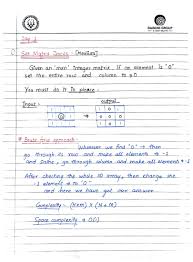 Day 1
Set Matrix Zeroes [Medium]
Given an 'mxn' Integer matrix, if an element is "0"
set the entire row and column to 0
You must do it In place.
Input:-
output
0
Brute force approach
Whenever we find "0" then
go through its row and make all elements → -1
and column and make all elements → -1
After checking the whole 2D array, then change
-1 element to "0"
and here we have got our answer
Complexity:- (N×m) × (N+m)
Space complexity → O(1)